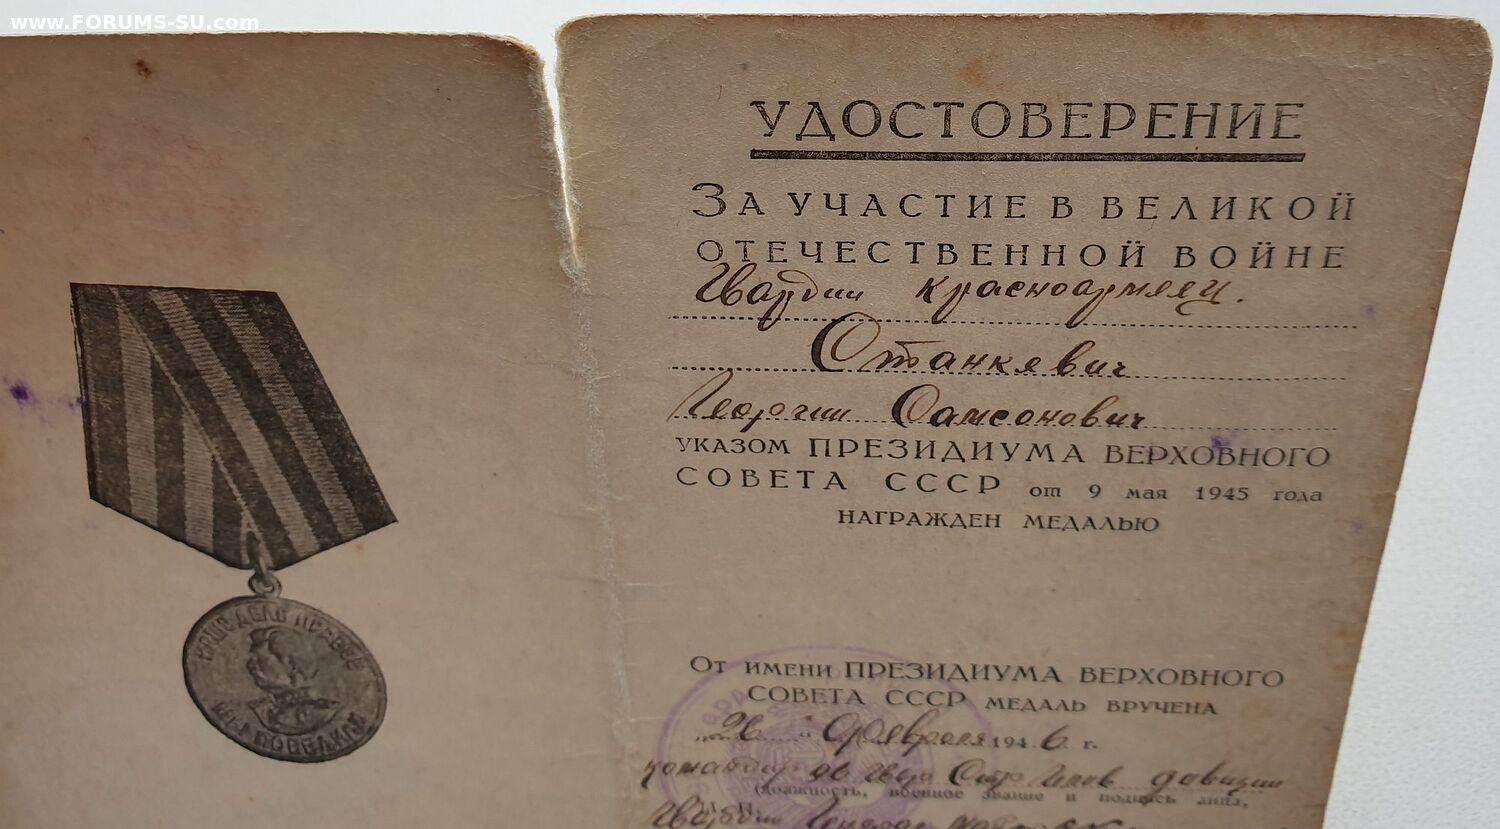 www.FORUMS-SU.com
УДОСТОВЕРЕНИЕ
ЗА УЧАСТИЕ В ВЕЛИКОЙ
ОТЕЧЕСТВЕННОЙ ВОЙНЕ
Гвардии красноармеец.
Станкевич
Георгии Самсонович
УКАЗОМ ПРЕЗИДИУМА ВЕРХОВНОГО
СОВЕТА СССР от 9 мая 1945 года
НАГРАЖДЕН МЕДАЛЬЮ
НАШЕ ДЕЛО ПРАВОЕ
МЫ ПОБЕДИЛИ
ОТ ИМЕНИ ПРЕЗИДИУМА ВЕРХОВНОГО
СОВЕТА СССР МЕДАЛЬ ВРУЧЕНА
„26" февраля 1946 г.
командир Гвар Стр дивизии
(должность, воинское звание и подпись лица,
Гвардии Генерал